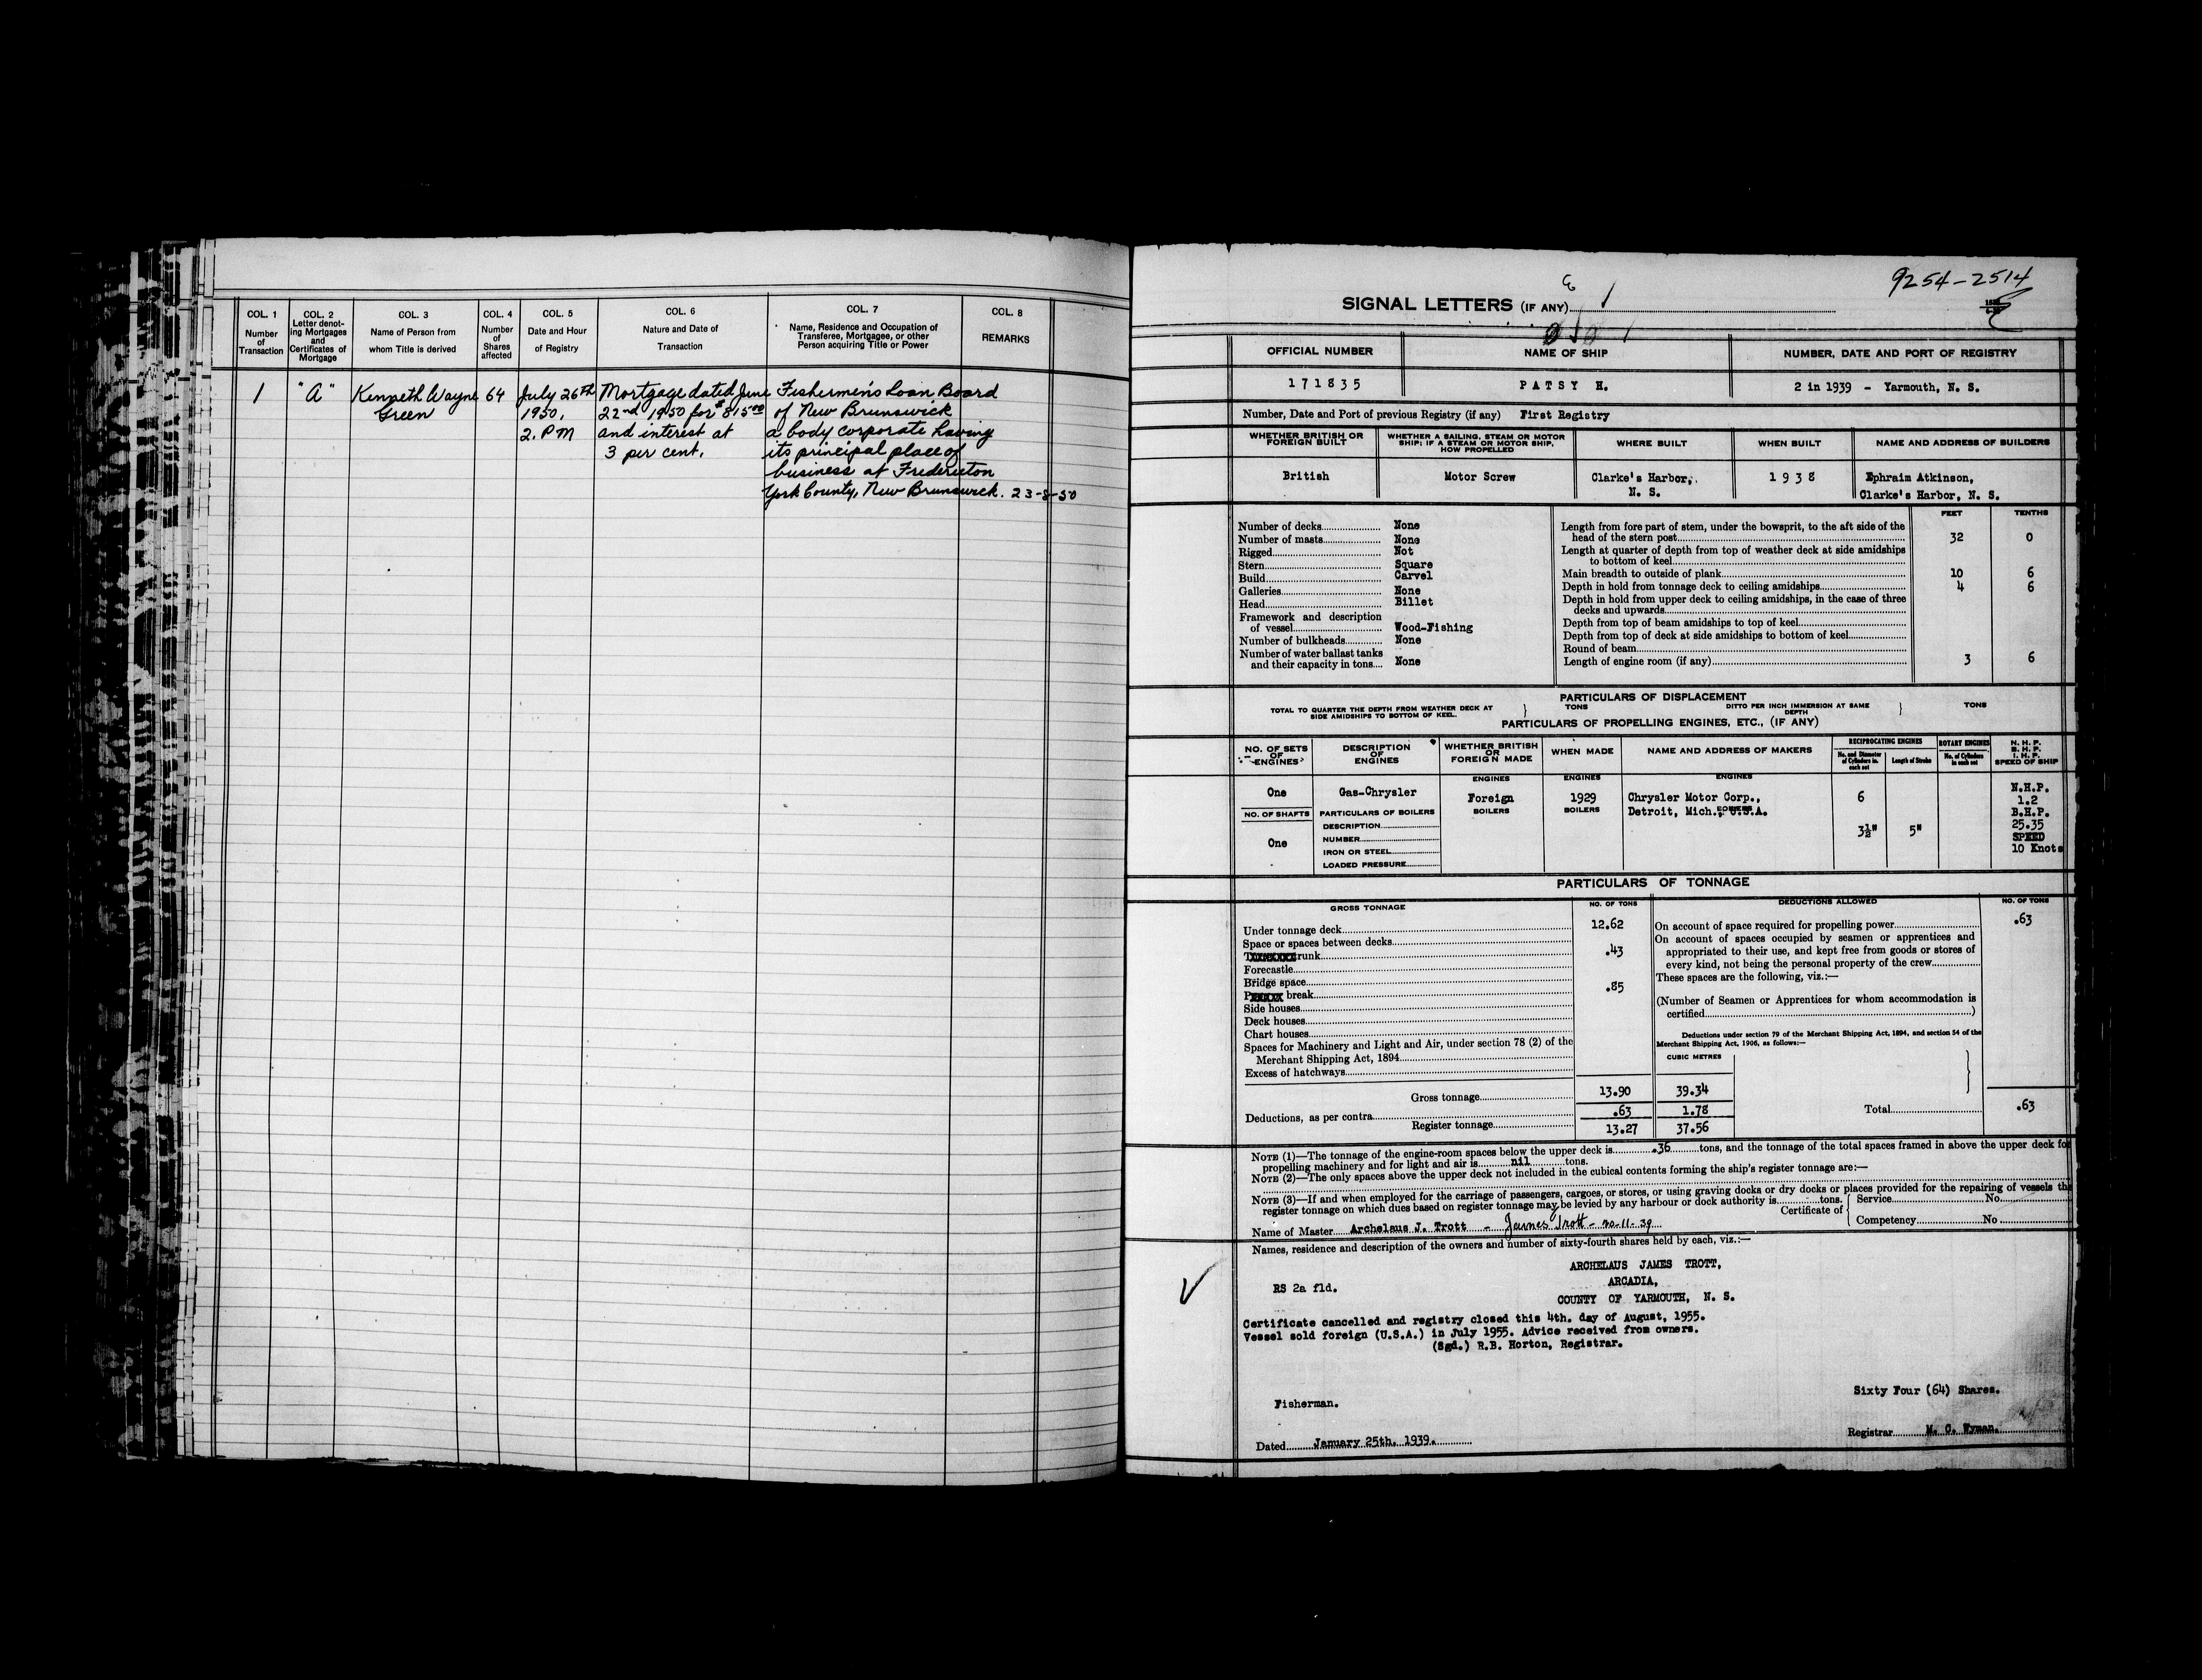 COL. 1 COL. 2 COL. 3 COL. 4 COL. 5 COL. 6 COL. 7 COL. 8
Number of Transaction
Letter denoting Mortgages and Certificates of Mortgage
Name of Person from whom Title is derived
Number of Shares affected
Date and Hour of Registry
Nature and Date of Transaction
Name, Residence and Occupation of Transferee, Mortgagee, or other Person acquiring Title or Power
REMARKS
1 "A" Kenneth Wayne 64 July 26th Mortgage dated June Fishermen's Loan Board
Green 1950, 22nd 1950 for $815.00 of New Brunswick
2. P M and interest at a body corporate having
3 per cent. its principal place of
business at Fredericton
York County, New Brunswick. 23-8-50
9254-2514
SIGNAL LETTERS (IF ANY)
OFFICIAL NUMBER NAME OF SHIP NUMBER, DATE AND PORT OF REGISTRY
171835 PATSY H. 2 in 1939 - Yarmouth, N. S.
Number, Date and Port of previous Registry (if any) First Registry
WHETHER BRITISH OR FOREIGN BUILT
WHETHER A SAILING, STEAM OR MOTOR SHIP; IF A STEAM OR MOTOR SHIP, HOW PROPELLED
WHERE BUILT WHEN BUILT NAME AND ADDRESS OF BUILDERS
British Motor Screw Clarke's Harbor, 1938 Ephraim Atkinson,
N. S. Clarke's Harbor, N. S.
FEET TENTHS
Number of decks None
Number of masts None
Rigged Not
Stern Square
Build Carvel
Galleries None
Head Billet
Framework and description
of vessel Wood-Fishing
Number of bulkheads None
Number of water ballast tanks
and their capacity in tons None
Length from fore part of stem, under the bowsprit, to the aft side of the
head of the stern post 32 0
Length at quarter of depth from top of weather deck at side amidships
to bottom of keel
Main breadth to outside of plank 10 6
Depth in hold from tonnage deck to ceiling amidships 4 6
Depth in hold from upper deck to ceiling amidships, in the case of three
decks and upwards
Depth from top of beam amidships to top of keel
Depth from top of deck at side amidships to bottom of keel
Round of beam
Length of engine room (if any) 3 6
PARTICULARS OF DISPLACEMENT
TOTAL TO QUARTER THE DEPTH FROM WEATHER DECK AT SIDE AMIDSHIPS TO BOTTOM OF KEEL. } TONS DITTO PER INCH IMMERSION AT SAME DEPTH } TONS
PARTICULARS OF PROPELLING ENGINES, ETC., (IF ANY)
NO. OF SETS OF ENGINES
DESCRIPTION OF ENGINES
WHETHER BRITISH OR FOREIGN MADE
WHEN MADE
NAME AND ADDRESS OF MAKERS
RECIPROCATING ENGINES
No. and Diameter of Cylinders in each set
Length of Stroke
ROTARY ENGINES
No. of Cylinders in each set
N. H. P.
B. H. P.
I. H. P.
SPEED OF SHIP
ENGINES ENGINES ENGINES
One Gas-Chrysler Foreign 1929 Chrysler Motor Corp., 6 N.H.P.
1.2
NO. OF SHAFTS PARTICULARS OF BOILERS BOILERS BOILERS Detroit, Mich., U.S.A. B.H.P.
DESCRIPTION 3½" 5" 25.35
One NUMBER SPEED
IRON OR STEEL 10 Knots
LOADED PRESSURE
PARTICULARS OF TONNAGE
GROSS TONNAGE NO. OF TONS DEDUCTIONS ALLOWED NO. OF TONS
Under tonnage deck 12.62
Space or spaces between decks
Trunk .43
Forecastle
Bridge space
break .85
Side houses
Deck houses
Chart houses
Spaces for Machinery and Light and Air, under section 78 (2) of the
Merchant Shipping Act, 1894
Excess of hatchways
Gross tonnage 13.90 39.34
Deductions, as per contra .63 1.78
Register tonnage 13.27 37.56
On account of space required for propelling power .63
On account of spaces occupied by seamen or apprentices and
appropriated to their use, and kept free from goods or stores of
every kind, not being the personal property of the crew
These spaces are the following, viz.:—
(Number of Seamen or Apprentices for whom accommodation is
certified )
Deductions under section 79 of the Merchant Shipping Act, 1894, and section 54 of the
Merchant Shipping Act, 1906, as follows:—
CUBIC METRES
Total .63
NOTE (1)—The tonnage of the engine-room spaces below the upper deck is .36 tons, and the tonnage of the total spaces framed in above the upper deck for
propelling machinery and for light and air is nil tons.
NOTE (2)—The only spaces above the upper deck not included in the cubical contents forming the ship's register tonnage are:—
NOTE (3)—If and when employed for the carriage of passengers, cargoes, or stores, or using graving docks or dry docks or places provided for the repairing of vessels the
register tonnage on which dues based on register tonnage may be levied by any harbour or dock authority is tons.
Certificate of { Service No
Competency No
Name of Master Archelaus J. Trott - James Trott - 20-11-39
Names, residence and description of the owners and number of sixty-fourth shares held by each, viz.:—
ARCHELAUS JAMES TROTT,
RS 2a fld. ARCADIA,
COUNTY OF YARMOUTH, N. S.
Certificate cancelled and registry closed this 4th. day of August, 1955.
Vessel sold foreign (U.S.A.) in July 1955. Advice received from owners.
(Sgd.) R.B. Horton, Registrar.
Sixty Four (64) Shares.
Fisherman.
Registrar M. C. Wyman.
Dated January 25th. 1939.